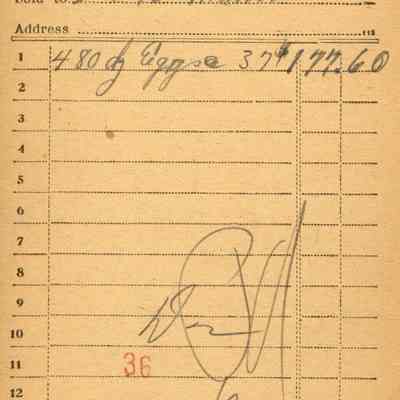 Sold to
Address 
1 480 dz Eggs @ 37¢ 177.60
2
3
4
5
6
7
8
9
10
11 36
12